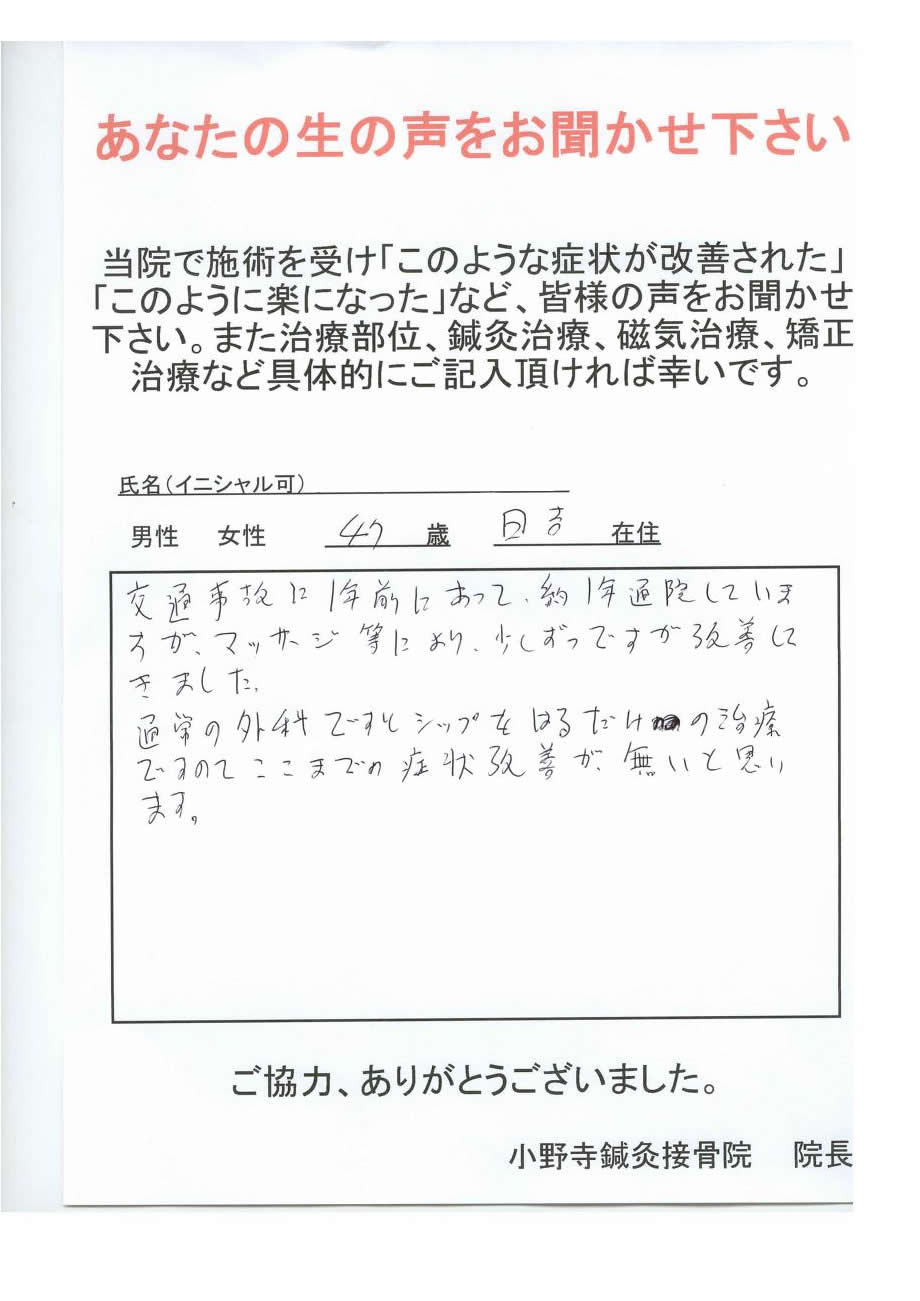 あなたの生の声をお聞かせ下さい
当院で施術を受け「このような症状が改善された」
「このように楽になった」など、皆様の声をお聞かせ
下さい。また治療部位、鍼灸治療、磁気治療、矯正
治療など具体的にご記入頂ければ幸いです。
氏名(イニシャル可)
男性 女性 47 歳 日吉 在住
交通事故に1年前にあって、約1年通院していま
すが、マッサージ等により、少しずつですが改善して
きました。
通常の外科ですとシップをはるだけの治療
ですのでここまでの症状改善が、無いと思い
ます。
ご協力、ありがとうございました。
小野寺鍼灸接骨院 院長